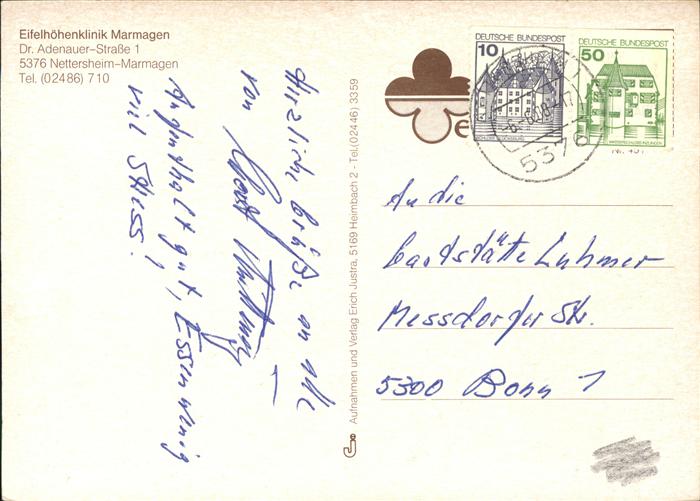 Eifelhöhenklinik Marmagen
Dr. Adenauer-Straße 1
5376 Nettersheim-Marmagen
Tel. (02486) 7 10
Herzliche Grüße an alle
von Horst
Aufenthalt gut, Essen wenig
viel Stress!
Aufnahmen und Verlag Erich Justra, 5169 Heimbach 2 - Tel.(02446) 3359
DEUTSCHE BUNDESPOST
10
DEUTSCHE BUNDESPOST
50
5376
An die
Gaststätte Luhmer
Messdorfer Str.
5300 Bonn 1